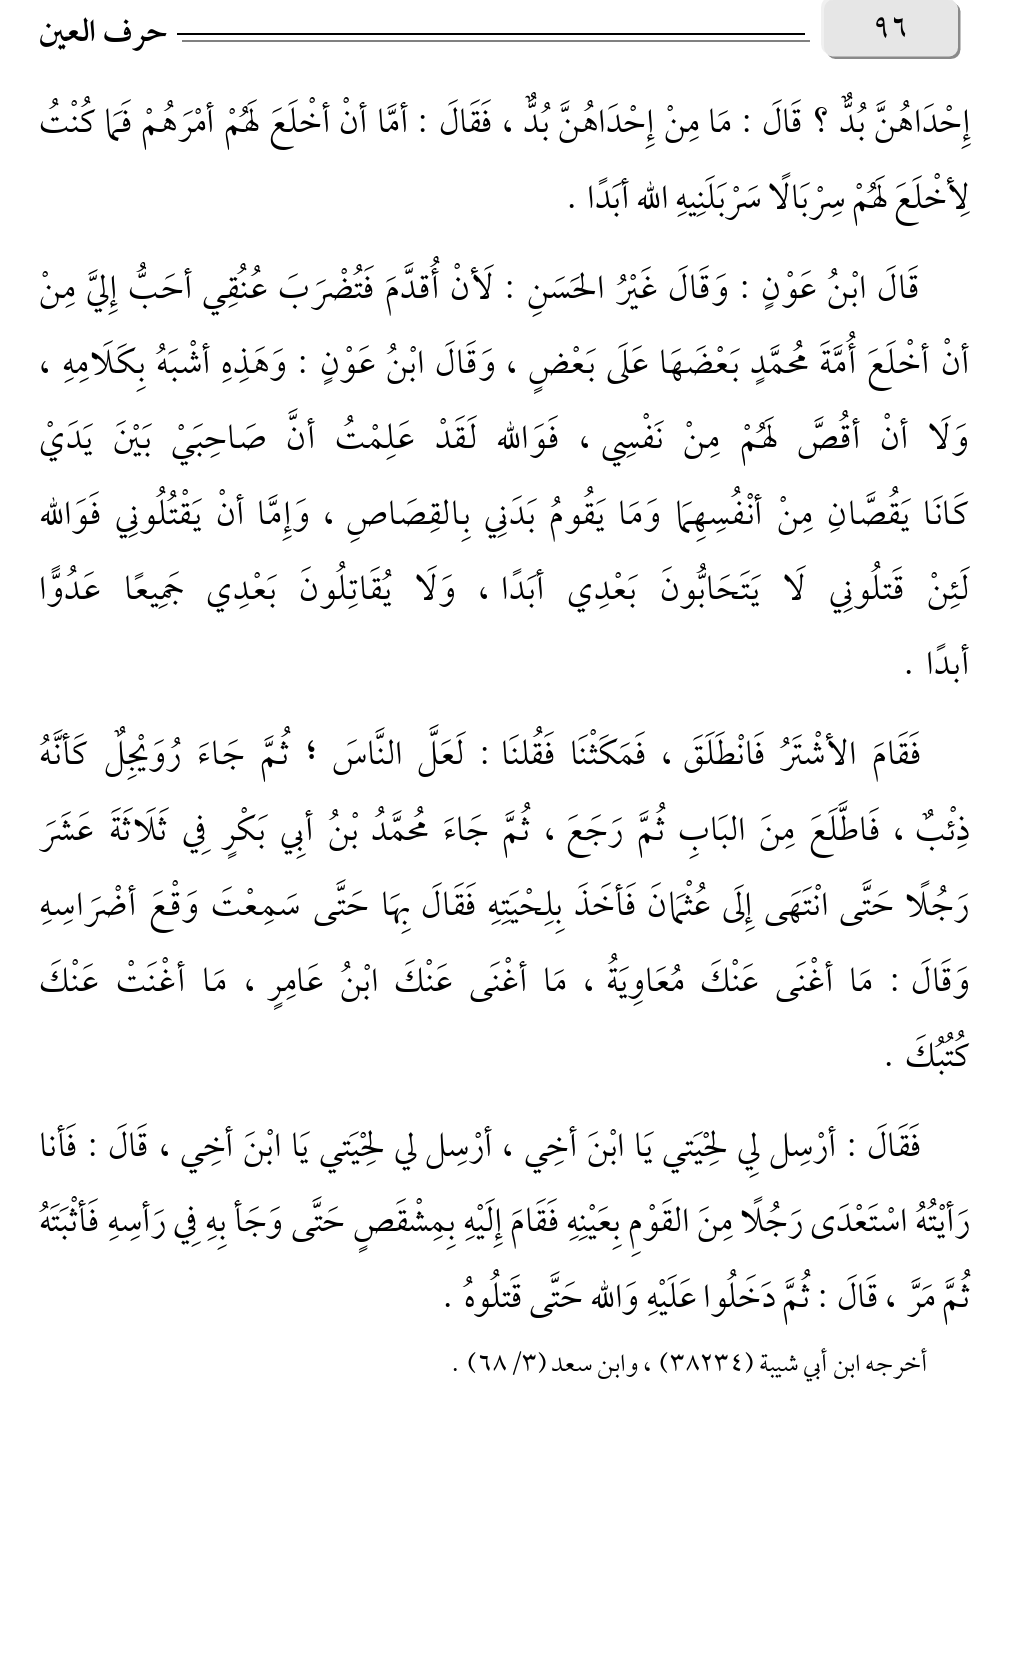 ٩٦
حرف العين
إِحْدَاهُنَّ بُدٌّ ؟ قَالَ : مَا مِنْ إِحْدَاهُنَّ بُدٌّ ، فَقَالَ : أمَّا أنْ أخْلَعَ لَهُمْ أمْرَهُمْ فَمَا كُنْتُ
لِأخْلَعَ لَهُمْ سِرْبَالًا سَرْبَلَنِيهِ الله أبَدًا .
قَالَ ابْنُ عَوْنٍ : وَقَالَ غَيْرُ الحَسَنِ : لَأنْ أُقدَّمَ فَتُضْرَبَ عُنُقِي أحَبُّ إِليَّ مِنْ
أنْ أخْلَعَ أُمَّةَ مُحمَّدٍ بَعْضَهَا عَلَى بَعْضٍ ، وَقَالَ ابْنُ عَوْنٍ : وَهَذِهِ أشْبَهُ بِكَلَامِهِ ،
وَلَا أنْ أقُصَّ لَهُمْ مِنْ نَفْسِي ، فَوَالله لَقَدْ عَلِمْتُ أنَّ صَاحِبَيْ بَيْنَ يَدَيْ
كَانَا يَقُصَّانِ مِنْ أنْفُسِهِمَا وَمَا يَقُومُ بَدَنِي بِالقِصَاصِ ، وَإِمَّا أنْ يَقْتُلُونِي فَوَالله
لَئِنْ قَتلُونِي لَا يَتَحَابُّونَ بَعْدِي أبَدًا ، وَلَا يُقَاتِلُونَ بَعْدِي جَمِيعًا عَدُوًّا
أبدًا .
فَقَامَ الأشْتَرُ فَانْطَلَقَ ، فَمَكَثْنَا فَقُلنَا : لَعَلَّ النَّاسَ ؛ ثُمَّ جَاءَ رُوَيْجِلٌ كَأنَّهُ
ذِئْبٌ ، فَاطَّلَعَ مِنَ البَابِ ثُمَّ رَجَعَ ، ثُمَّ جَاءَ مُحمَّدُ بْنُ أبِي بَكْرٍ فِي ثَلَاثَةَ عَشَرَ
رَجُلًا حَتَّى انْتَهَى إِلَى عُثْمَانَ فَأخَذَ بِلِحْيَتِهِ فَقَالَ بِهَا حَتَّى سَمِعْتَ وَقْعَ أضْرَاسِهِ
وَقَالَ : مَا أغْنَى عَنْكَ مُعَاوِيَةُ ، مَا أغْنَى عَنْكَ ابْنُ عَامِرٍ ، مَا أغْنَتْ عَنْكَ
كُتُبُكَ .
فَقَالَ : أرْسِل لِي لِحْيَتي يَا ابْنَ أخِي ، أرْسِل لي لِحْيَتي يَا ابْنَ أخِي ، قَالَ : فَأنا
رَأيْتُهُ اسْتَعْدَى رَجُلًا مِنَ القَوْمِ بِعَيْنِهِ فَقَامَ إِلَيْهِ بِمِشْقَصٍ حَتَّى وَجَأ بِهِ فِي رَأسِهِ فَأثْبَتَهُ
ثُمَّ مَرَّ ، قَالَ : ثُمَّ دَخَلُوا عَلَيْهِ وَالله حَتَّى قَتلُوهُ .
أخرجه ابن أبي شيبة (٣٨٢٣٤) ، وابن سعد (٣/ ٦٨) .